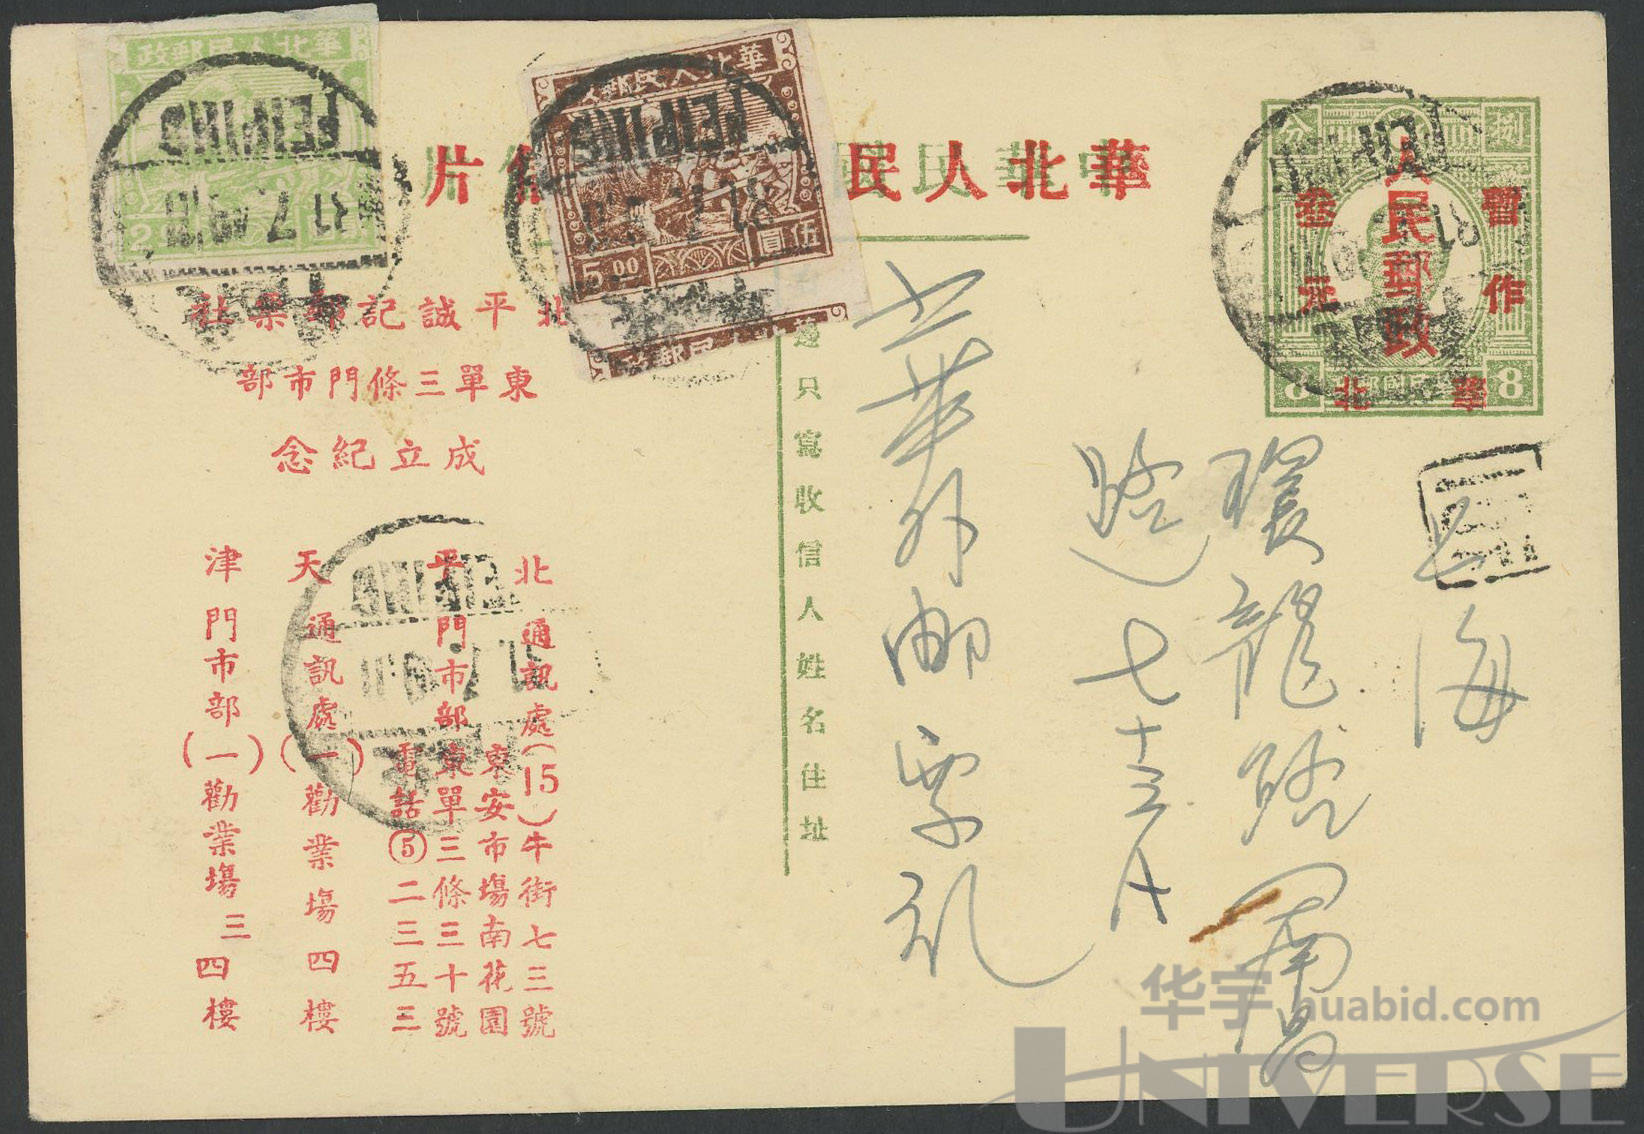 華北人民郵政
2 00
伍圓
5 00
PEIPING
31.7.49
華北人民
片
捌
分
人民郵政
暫作
叁元
華北
8
8
北平誠記郵票社
東單三條門市部
成立紀念
北平
通訊處(15)牛街七三號
東安市場南花園
門市部東單三條三十號
電話⑤二三五三
天津
通訊處(一)勸業場四樓
門市部(一)勸業場三四樓
邊只寫收信人姓名住址
上海
環龍路
七十三A
郵票
华宇 huabid.com
UNIVERSE